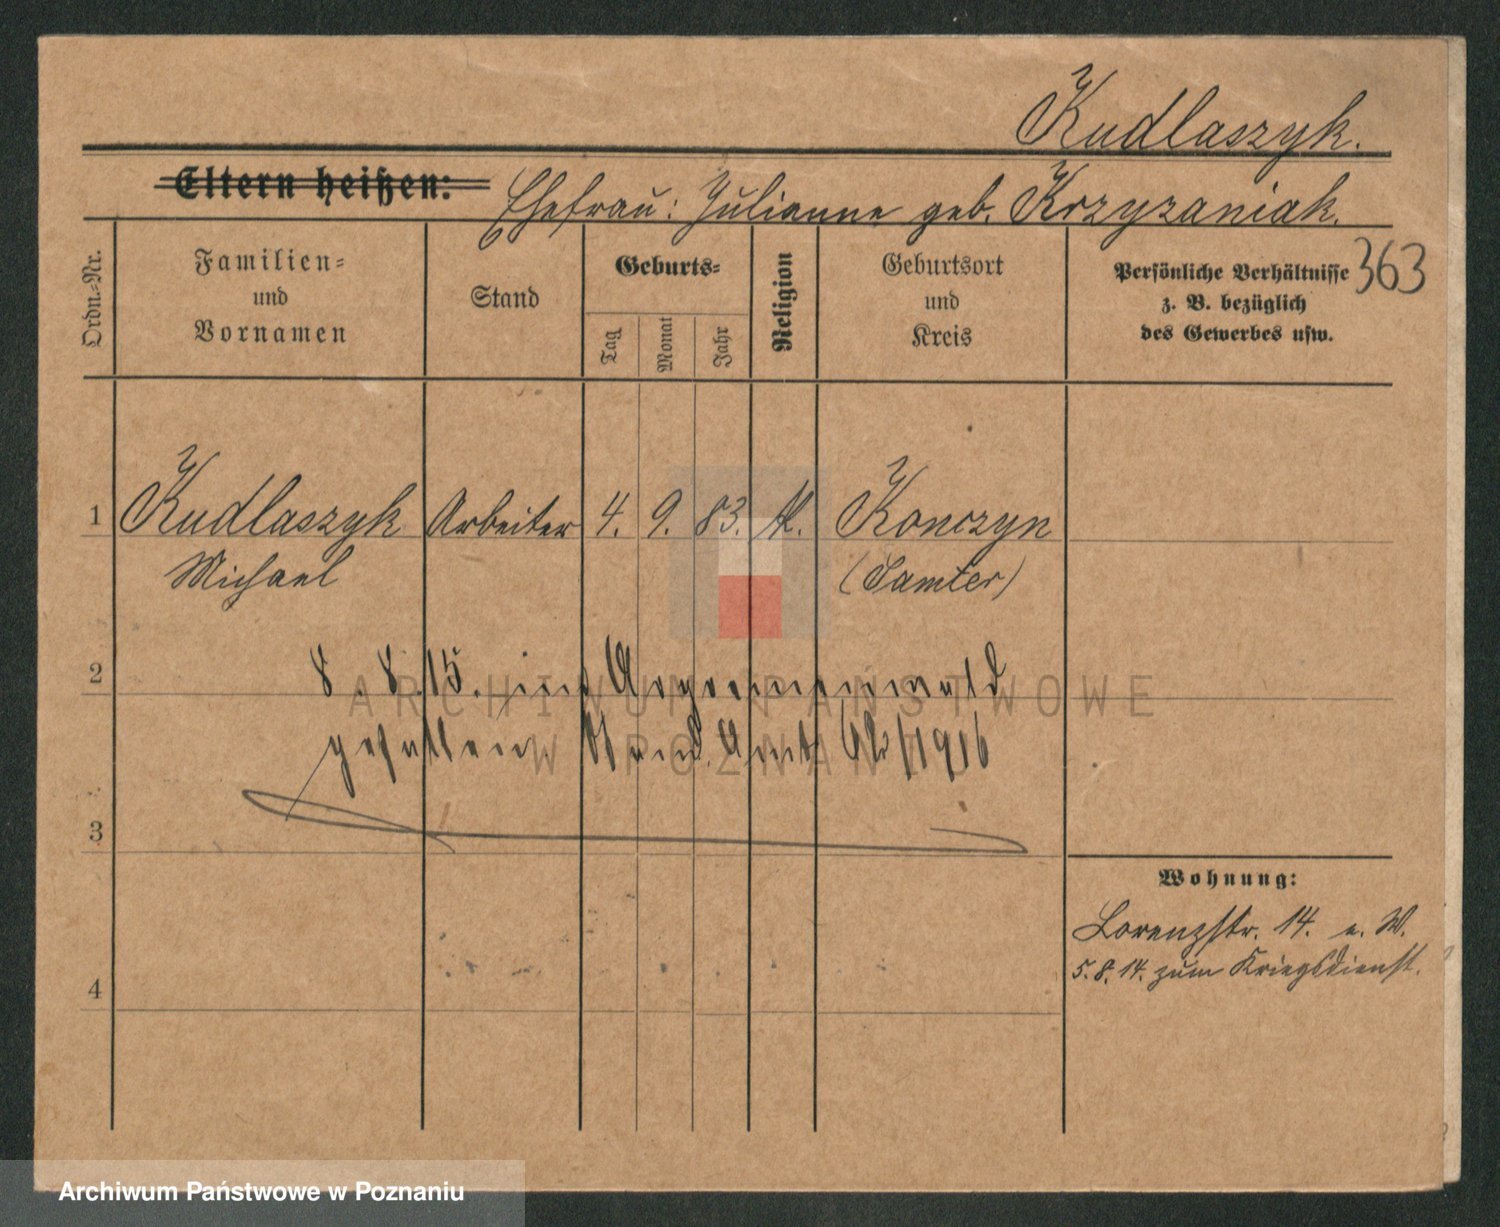 Kudlaszyk.
Eltern heißen: Ehefrau: Julianne geb. Krzyzaniak.
Ordn.=Nr.
Familien=
und
Vornamen
Stand
Geburts=
Tag
Monat
Jahr
Religion
Geburtsort
und
Kreis
Persönliche Verhältnisse
z. B. bezüglich
des Gewerbes usw.
363
1 Kudlaszyk Arbeiter 4. 9. 83. K. Konczyn
Michael (Samter)
2 8. 8. 15. im Argonnenwald
gefallen 1916
3
4
Wohnung:
Lorenzstr. 14. e. W.
5. 8. 14. zum Kriegsdienst.
ARCHIWUM PAŃSTWOWE
W POZNANIU
Archiwum Państwowe w Poznaniu